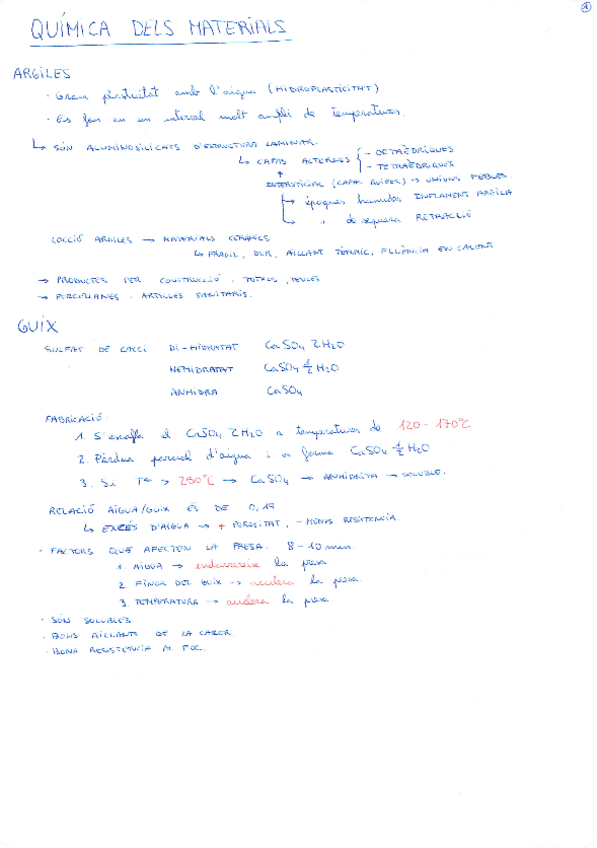 1
QUÍMICA DELS MATERIALS
ARGILES
· Gran plasticitat amb l'aigua (HIDROPLASTICITAT)
· Es fon en un interval molt ampli de temperatures.
↳ SÓN ALUMINOSILICATS D'ESTRUCTURA LAMINAR.
↳ CAPES ALTERNES { - OCTAÈDRIQUES
- TETRAÈDRIQUES
INTERSTICIAL (CAPES BUIDES) → UNIONS FEBLES
→ èpoques humides INFLAMENT ARGILA
↳ " de sequera RETRACCIÓ
COCCIÓ ARGILES → MATERIALS CERÀMICS
↳ FRÀGIL, DUR, AILLANT TÈRMIC, FLUÈNCIA EN CALENT
→ PRODUCTES PER CONSTRUCCIÓ. TOTXOS, TEULES
→ PORCELLANES. ARTICLES SANITARIS.
GUIX
SULFAT DE CALCI DI-HIDRATAT CaSO4 2H2O
HEMIDRATAT CaSO4 1/2 H2O
ANHIDRA CaSO4
FABRICACIÓ:
1. S'escalfa el CaSO4 2H2O a temperatures de 120-170ºC
2. Pèrdua parcial d'aigua i es forma CaSO4 1/2 H2O
3. Si Tª > 250ºC → CaSO4 → ANHIDRITA → SOLUBLE.
RELACIÓ AIGUA/GUIX ÉS DE 0,19
↳ EXCÉS D'AIGUA → + POROSITAT, - MENYS RESISTENCIA.
· FACTORS QUE AFECTEN LA PRESA. 8-10 min.
1. AIGUA → endarrereix la presa
2. FINOR DEL GUIX → accelera la presa.
3. TEMPERATURA → accelera la presa
· SÓN SOLUBLES.
· BONS AILLANTS DE LA CALOR.
· BONA RESISTENCIA AL FOC.